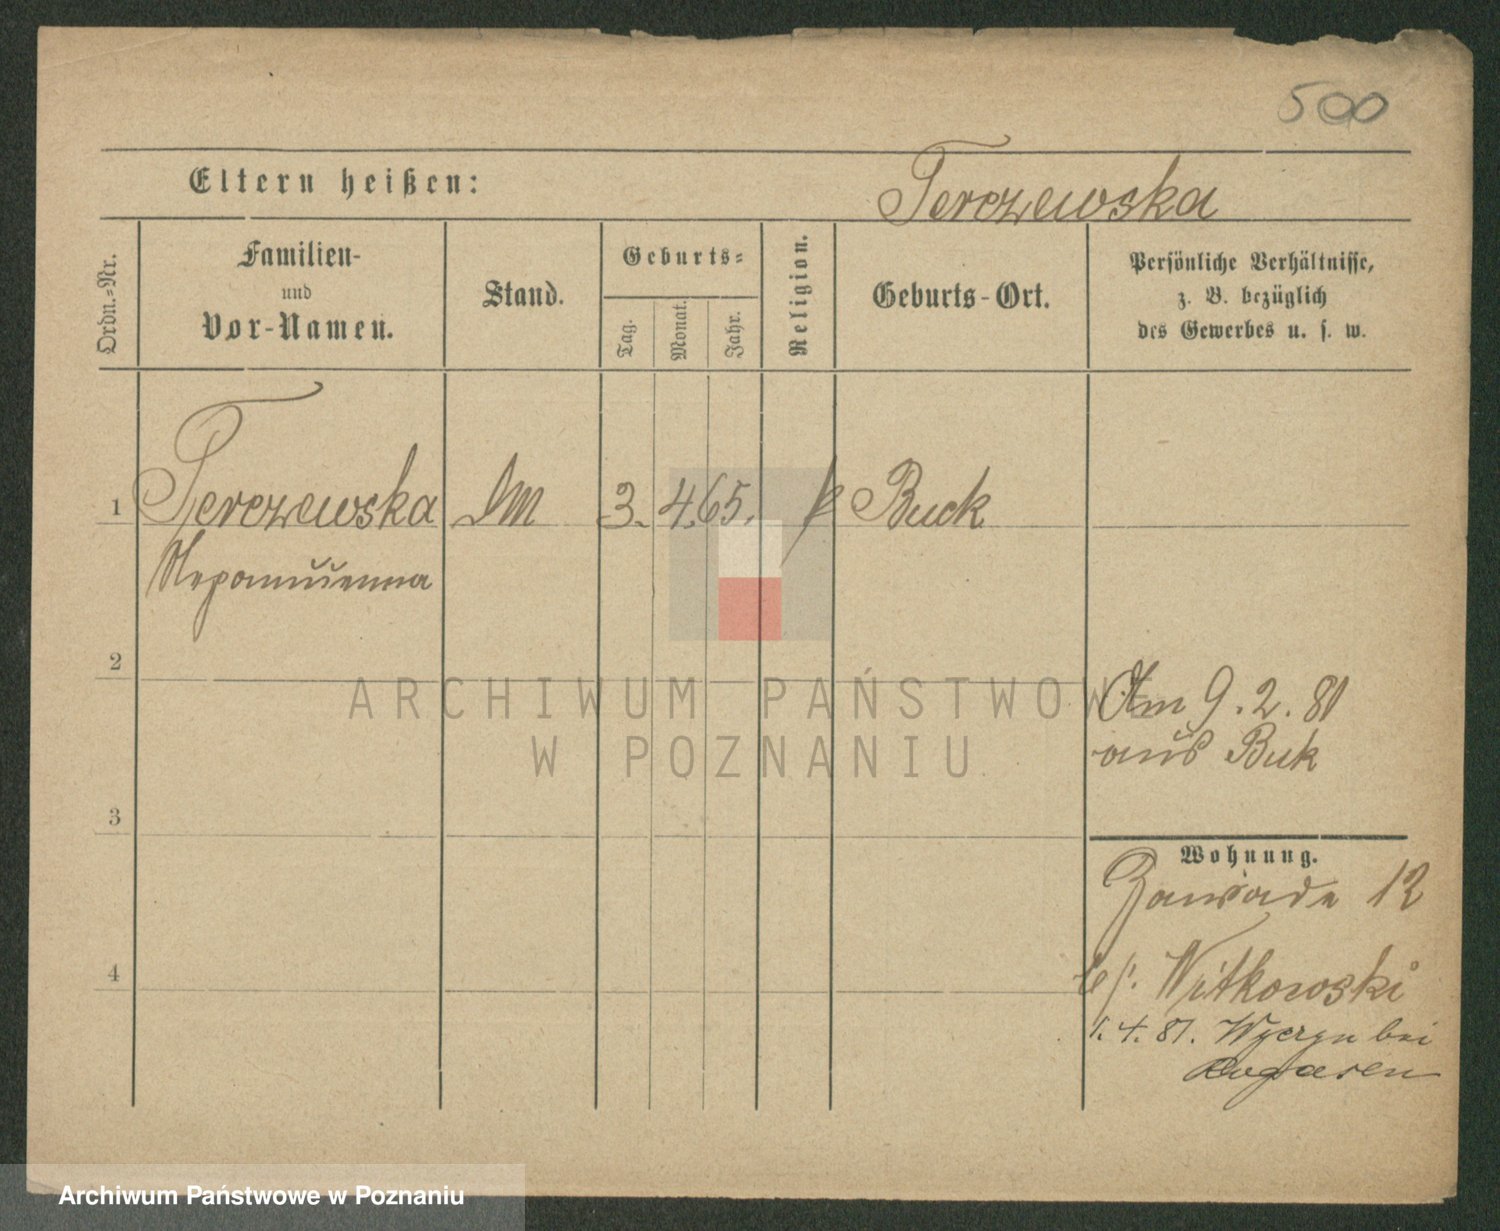 500
Eltern heißen: Terczewska
Ordn.-Nr.
Familien-
und
Vor-Namen.
Stand.
Geburts-
Tag.
Monat.
Jahr.
Religion.
Geburts-Ort.
Persönliche Verhältnisse,
z. B. bezüglich
des Gewerbes u. s. w.
1 Terczewska DM 3. 4. 65. k Buck
Nepomucenna
2
Am 9. 2. 81
aus Buk
3
Wohnung.
Zawade 12
b/ Witkowski
4
1. 4. 81. bei
Rogasen
ARCHIWUM PAŃSTWOWE
W POZNANIU
Archiwum Państwowe w Poznaniu